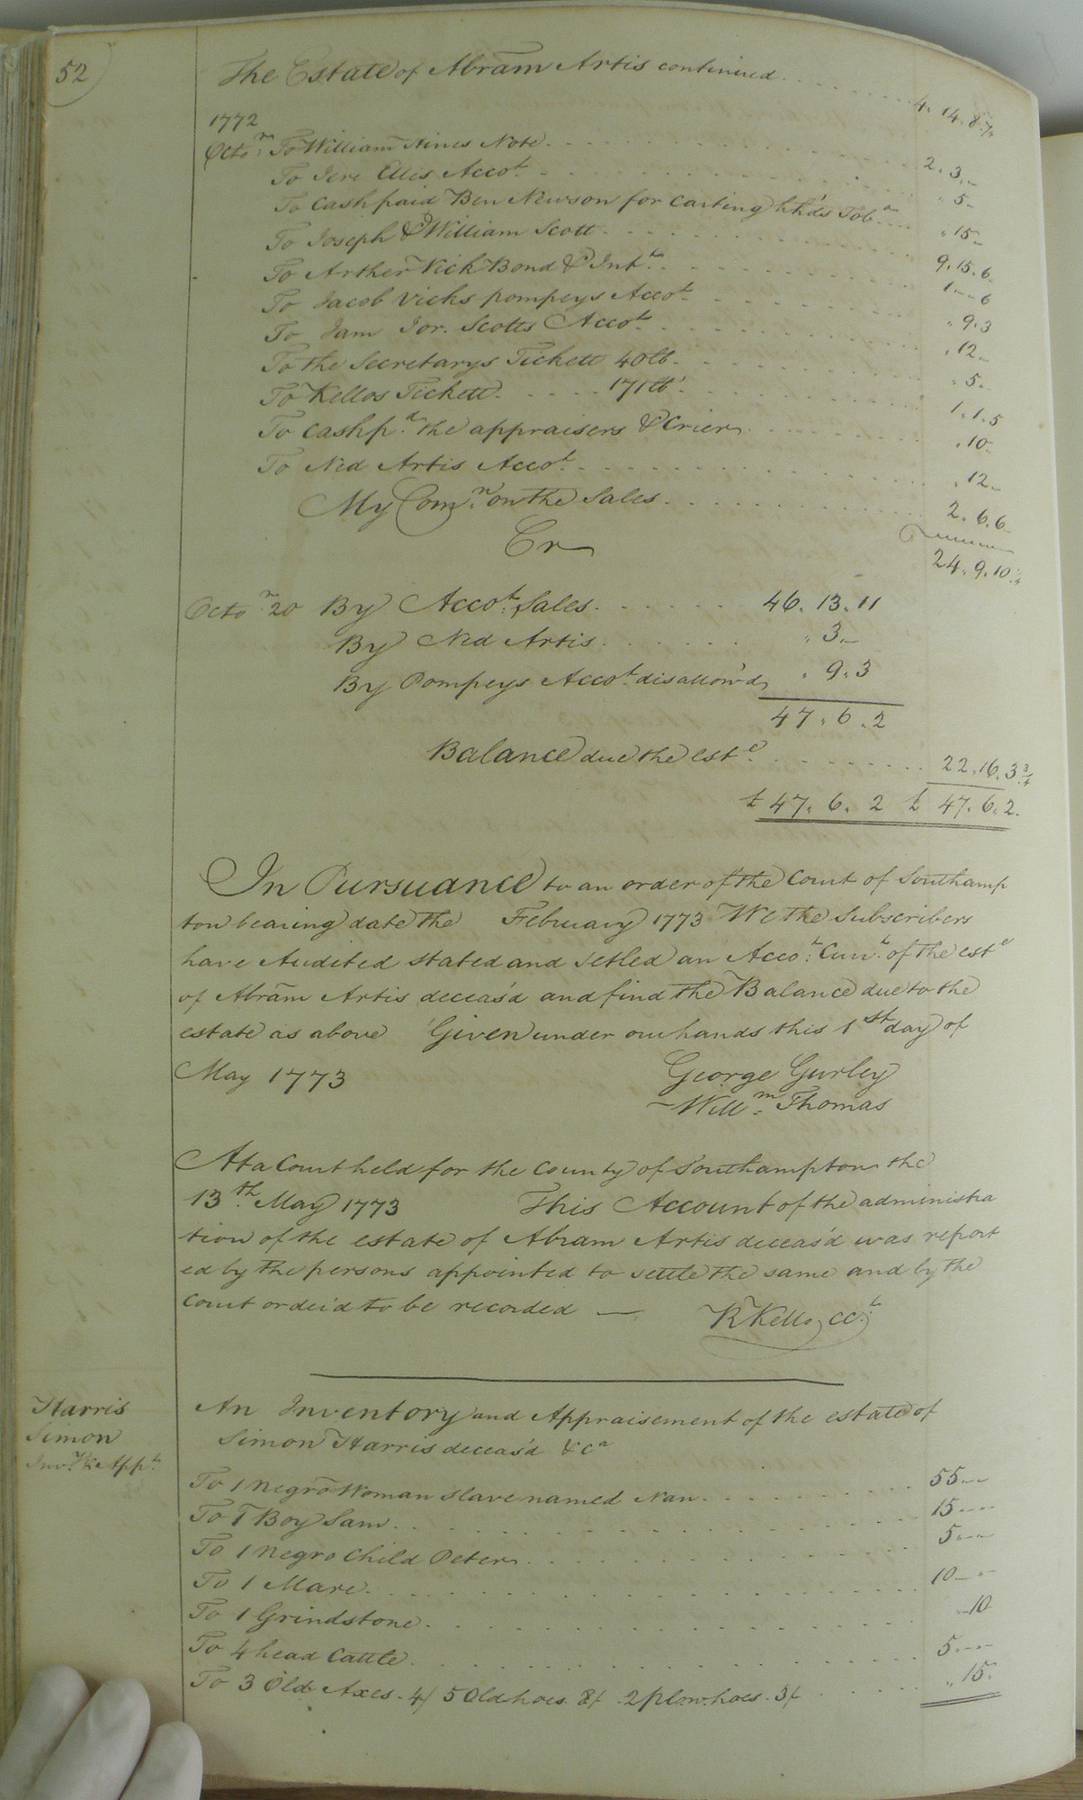 52
The Estate of Abram Artis continued . . . . . . . . 4. 14. 8 1/4
1772
Octo.r To William Hines Note . . . . . 2. 3. -
To Jere Ellis Acco.t . . . . . " 5 -
To Cash paid Ben Newson for carting hh'ds Tob.o . . . " 15 -
To Joseph & William Scott . . . . . 9. 15. 6
To Arther Vick Bond & Int.t . . . . . 1 - - 6
To Jacob Vicks pompeys Acco.t . . . . . " 9. 3
To Jam Jor. Scotts Acco.t . . . . . " 12 -
To the Secretarys Tickett 40lb . . . . . " 5 -
To Kellos Tickett . . . . . 171lb . . . . . 1. 1. 5
To Cash p.d the appraisers & Crier . . . . . " 10 -
To Ned Artis Acco.t . . . . . " 12 -
My Com.n on the Sales . . . . . 2. 6. 6
24. 9. 10 1/4
Cr
Octo.r 20 By Acco.t Sales . . . . . 46. 13. 11
By Ned Artis . . . . . " 3 -
By Pompeys Acco.t disallow'd " 9. 3
47. 6. 2
Balance due the est.e . . . . . 22. 16. 3 3/4
£ 47. 6. 2 £ 47. 6. 2.
In Pursuance to an order of the Court of Southamp
ton bearing date the February 1773 We the Subscribers
have Audited stated and setled an Acco.t Curr.t of the est.e
of Abram Artis deceas'd and find the Balance due to the
estate as above Given under our hands this 1st day of
May 1773 George Gurley
Will.m Thomas
At a Court held for the County of Southampton the
13.th May 1773 This Account of the administra
tion of the estate of Abram Artis deceas'd was report
ed by the persons appointed to settle the same and by the
Court order'd to be recorded — R Kello CC.t
Harris
Simon
Inv.y & App.t
An Inventory and Appraisement of the estate of
Simon Harris deceas'd &c.a
To 1 Negro Woman Slave named Nan . . . . . 55 - -
To 1 Boy Sam . . . . . 15 - -
To 1 Negro Child Peter . . . . . 5 - -
To 1 Mare . . . . . 10 - -
To 1 Grindstone . . . . . - 10
To 4 head Cattle . . . . . 5 - -
To 3 Old Axes . 4/ 5 Old hoes 8/ . 2 Plow hoes . 3/ . . . . . " 15.